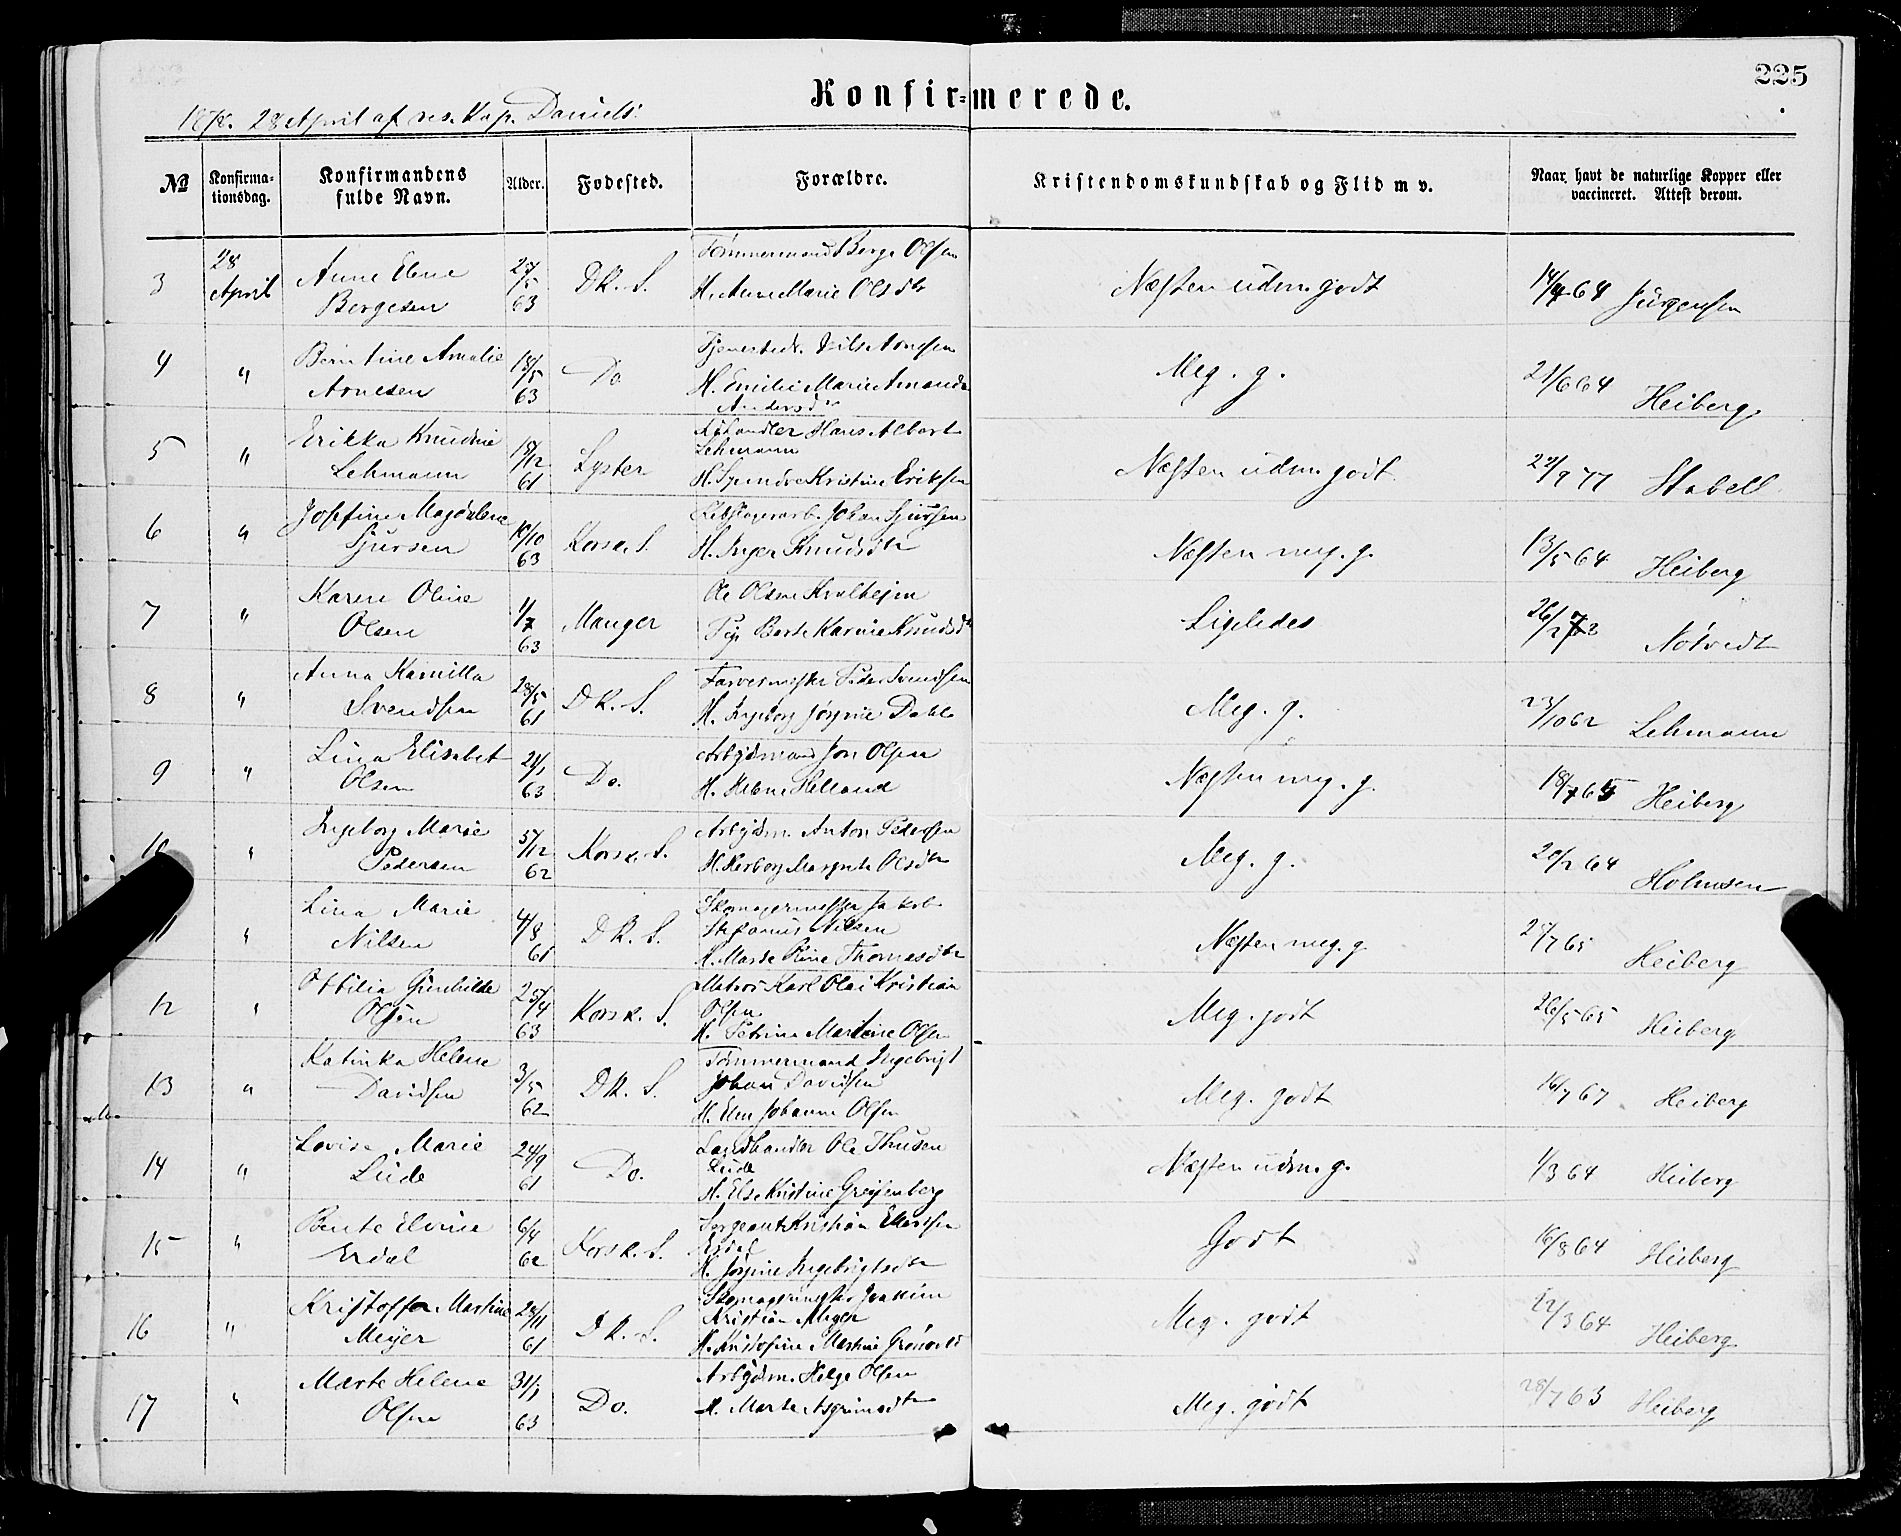 225
Konfirmerede.
1878. 28 April af res. Kap. Daniels:
№ Konfirmationsdag. Konfirmandens fulde Navn. Alder. Fødested. Forældre. Kristendomskundskab og Flid m v. Naar havt de naturlige Kopper eller vaccineret. Attest derom.
3 28 April Anne Elene Børgesen 27/5 63 DK. S. Tømmermand Børge Olsen H. Anne Marie Olsdtr Næsten udm. godt 14/4 64 Jürgensen
4 " Berntine Amalie Arnesen 18/5 63 Do Tjenestedr. Nils Arnesen H. Emilie Marie Amanda Andersdtr Meg. g. 21/6 64 Heiberg
5 " Erikka Knudine Lehmann 18/12 61 Lyster Hans Albert Lehmann H. Kristine Eriksen Næsten udm. godt 29/9 77 Stabell
6 " Josefine Magdalene Sjursen 10/10 63 Korsk. S. Johan Sjursen H. Inger Knudsdtr Næsten meg. g. 13/5 64 Heiberg
7 " Karen Oline Olsen 1/7 63 Manger Ole Olsen Pige Berte Karine Knudsdtr Ligeledes 26/2 73 Nøtvedt
8 " Anna Kamilla Svendsen 28/5 61 DK. S. Farvermester Peder Svendsen H. Ingeborg Jørgine Dahl Meg. g. 23/10 62 Lehmann
9 " Lina Elisabet Olsen 21/1 63 Do. Arbejdsmand Jon Olsen H. Helene Helland Næsten meg. g. 18/7 65 Heiberg
10 " Ingeborg Marie Pedersen 5/12 62 Korsk. S. Arbejdsm. Anton Pedersen H. Herborg Margrete Olsdtr Meg. g. 20/2 64 Holmsen
11 " Lina Marie Nilsen 4/8 61 DK. S. Skomagermester Jakob Stefanus Nilsen H. Marte Oline Thomasdtr Næsten meg. g. 27/7 65 Heiberg
12 " Ottilia Gunhilde Olsen 25/4 63 Korsk. S. Matros Karl Olai Kristian Olsen H. Petrine Martine Olsen Meg. godt 26/5 65 Heiberg
13 " Katinka Helene Davidsen 3/5 62 DK. S. Tømmermand Ingebrigt Johan Davidsen H. Elen Johanne Olsen Meg. godt 16/7 67 Heiberg
14 " Lovise Marie Lude 24/9 61 Do. Landhandler Ole Thusen Lude H. Else Kristine Greifenberg Næsten udm. g. 1/3 64 Heiberg
15 " Bente Elvine Erdal 6/4 62 Korsk. S. Sergeant Kristian Ellertsen Erdal H. Jørgine Ingebrigtsdtr Godt 16/8 64 Heiberg
16 " Kristoffa Martine Meyer 28/11 61 DK. S. Skomagermester Joakim Kristian Meyer H. Kristofine Martine Meg. godt 22/3 64 Heiberg
17 " Marte Helene Olsen 31/1 63 Do. Arbejdsm. Helge Olsen H. Marte Asgrimsdtr Meg. godt 28/7 63 Heiberg